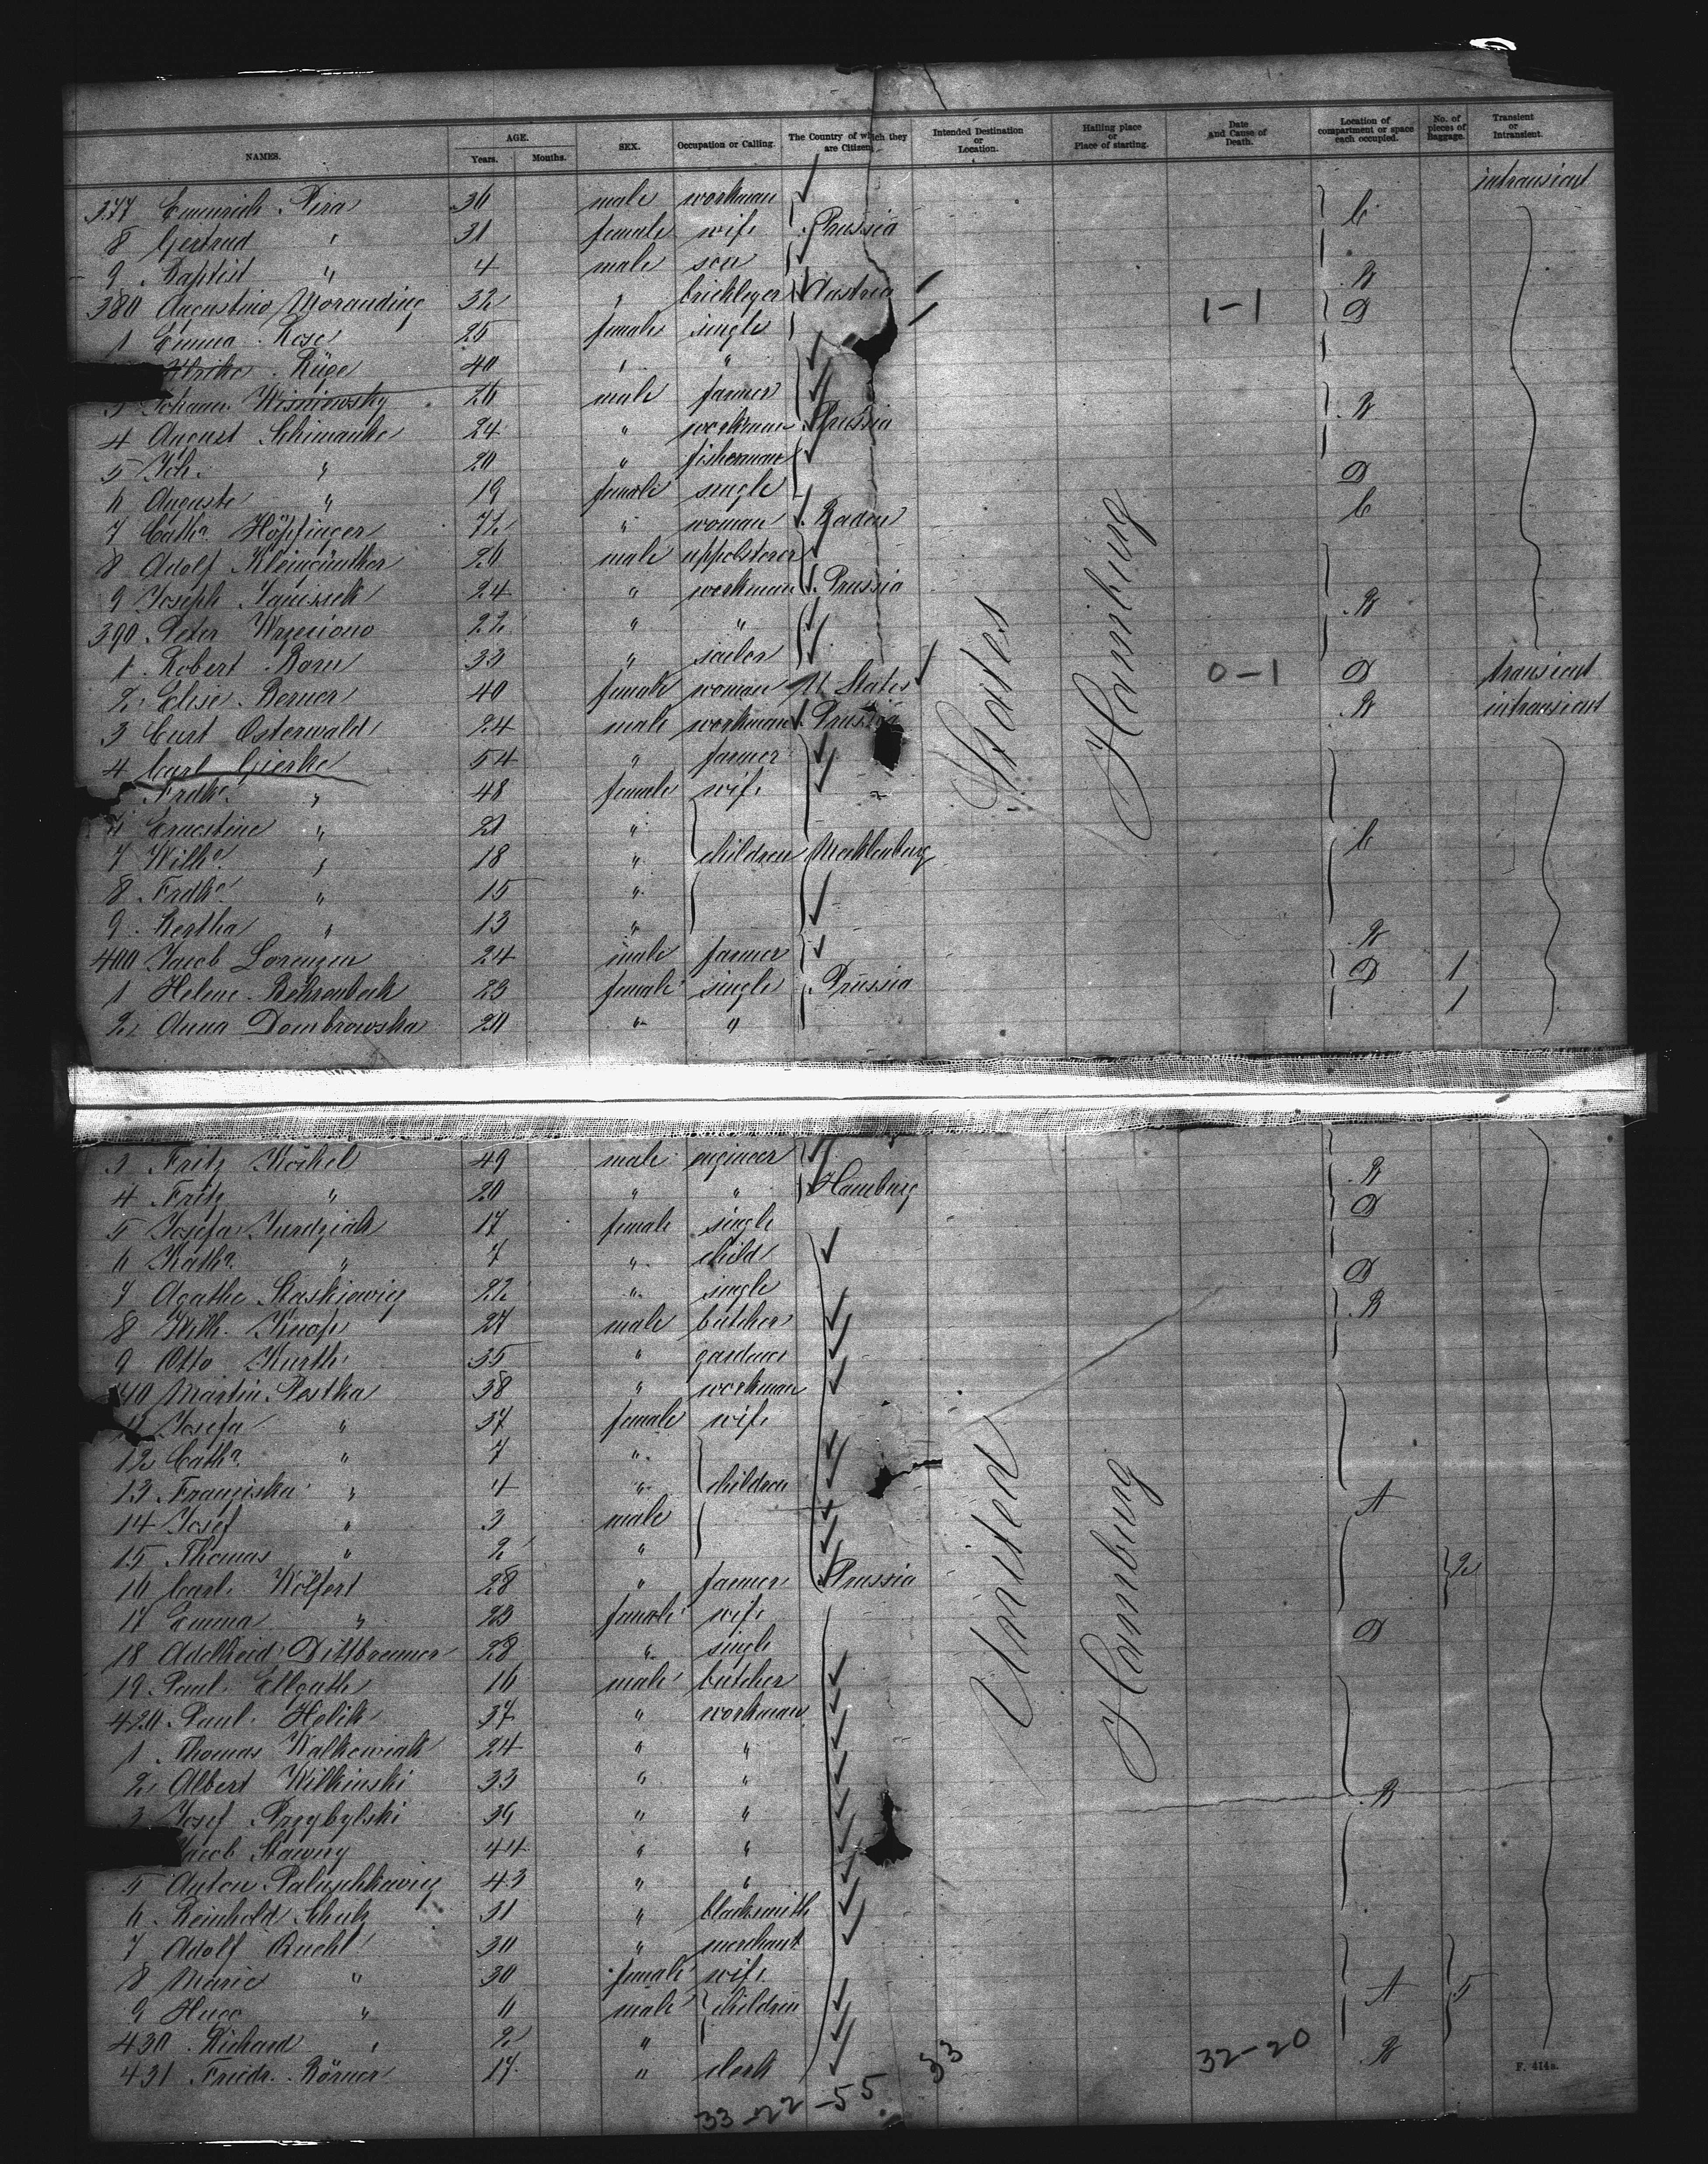 NAMES. AGE. Years. Months. SEX. Occupation or Calling. The Country of which they are Citizens. Intended Destination or Location. Hailing place or Place of starting. Date and Cause of Death. Location of compartment or space each occupied. No. of pieces of Baggage. Transient or Intransient.
377 Emmrich Pira 36 male workman intransient
8 Gertrud " 31 female wife Prussia C
9 Baptist " 4 male son
380 Augustino Morauding 32 " bricklayer Austria B
1 Emma Rose 25 female single 1-1 D
Ulrike Rüge 40 " "
3 Johann Wisniewsky 26 male farmer
4 August Schimanke 24 " workman Prussia B
5 Joh. " 20 " fisherman
6 Auguste " 19 female single D
7 Cath. Höpfinger 72 " woman Baden C
8 Adolf Kleingünther 26 male uppolsterer
9 Joseph Janissek 24 " workman Prussia
390 Peter Wrzeciono 22 " " B
1 Robert Baru 33 " sailor
2 Elise Berner 40 female woman U. States 0-1 D transient
3 Curt Osterwald 24 male workman Prussia B intransient
4 Carl Gierke 54 " farmer
Frdke. " 48 female wife
6 Ernestine " 21 "
7 Wilhe. " 18 " children Mecklenburg C
8 Frdke. " 15 "
9 Bertha " 13 "
400 Jacob Lorenzen 24 male farmer B
1 Helene Behrenbeck 23 female single Prussia D 1
2 Anna Dombrowska 20 " " 1
States
Hamburg
3 Fritz Köckel 49 male engineer
4 Fritz " 20 " " Hamburg B
5 Josefa Jurdziak 17 female single D
6 Kath. " 7 " child
7 Agathe Staskiewicz 22 " single D
8 Wilh. Knop 27 male butcher B
9 Otto Kurth 35 " gardener
410 Martin Postka 38 " workman
11 Josefa " 37 female wife
12 Cath. " 7 "
13 Franziska " 4 " children
14 Josef " 3 male A
15 Thomas " 2 "
16 Carl Wölfert 28 " farmer Prussia 2
17 Emma " 23 female wife
18 Adelheid Dittbrenner 28 " single D
19 Paul Ellguth 16 male butcher
420 Paul Helik 37 " workman
1 Thomas Walkowiak 24 " "
2 Albert Wilkinski 33 " "
3 Josef Przybylski 39 " " B
Jacob Stawny 44 " "
5 Anton Paluschkewicz 43 " "
6 Reinhold Schulz 31 " blacksmith
7 Adolf Ruehl 30 " merchant
8 Marie " 30 female wife A 5
9 Hugo " 11 male children
430 Richard " 2 "
431 Friedr. Börner 17 " clerk B
United
Hamburg
33 32-20
33-22-55
F. 414a.